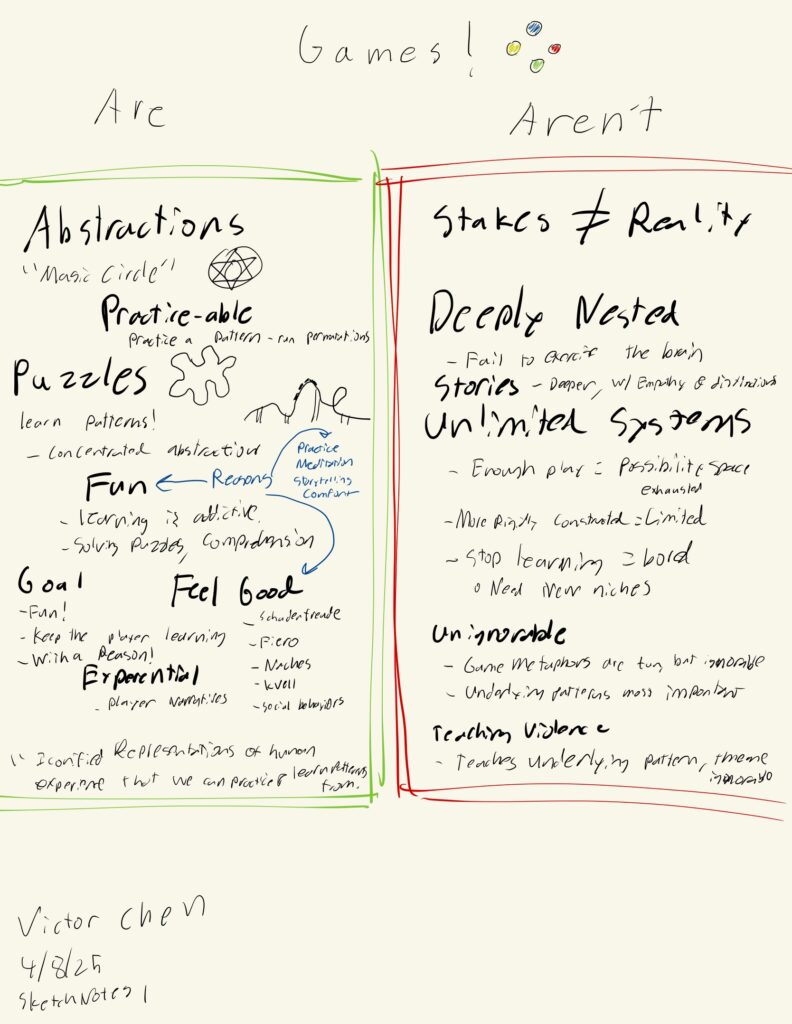 Games!
Are
Abstractions
"Magic Circle"
Practice-able
Practice a pattern - run permutations
Puzzles
learn patterns!
- Concentrated abstraction
Practice
Meditation
Storytelling
Comfort
Fun
Reasons
- learning is addictive.
- Solving Puzzles, Comprehension
Goal
- Fun!
- Keep the player learning
- With a Reason!
Feel Good
- Schadenfreude
- Fiero
- Naches
- Kvell
- Social behaviors
Experential
- Player Narratives
"Iconified Representations of human
experience that we can practice & learn patterns
from.
Aren't
Stakes ≠ Reality
Deeply Nested
- Fail to the brain
Stories - Deeper, w/ Empathy &
Unlimited Systems
- Enough play = Possibility space
exhausted
- More Rigidly Constructed = Limited
- Stop learning = bored
o Need New niches
Unignorable
- Game Metaphors are fun, but ignorable
- Underlying patterns most important
Teaching Violence
- Teaches underlying pattern, theme
ignorable
Victor Chen
4/8/25
Sketchnotes 1